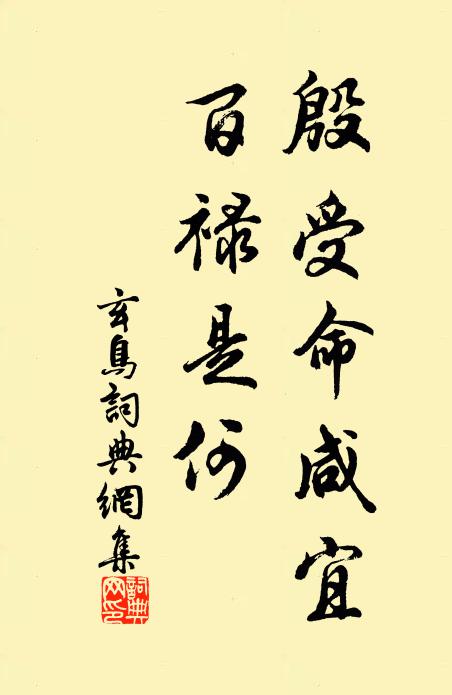 殷受命咸宜
百禄是何
玄鳥詞典網集
詞典網印